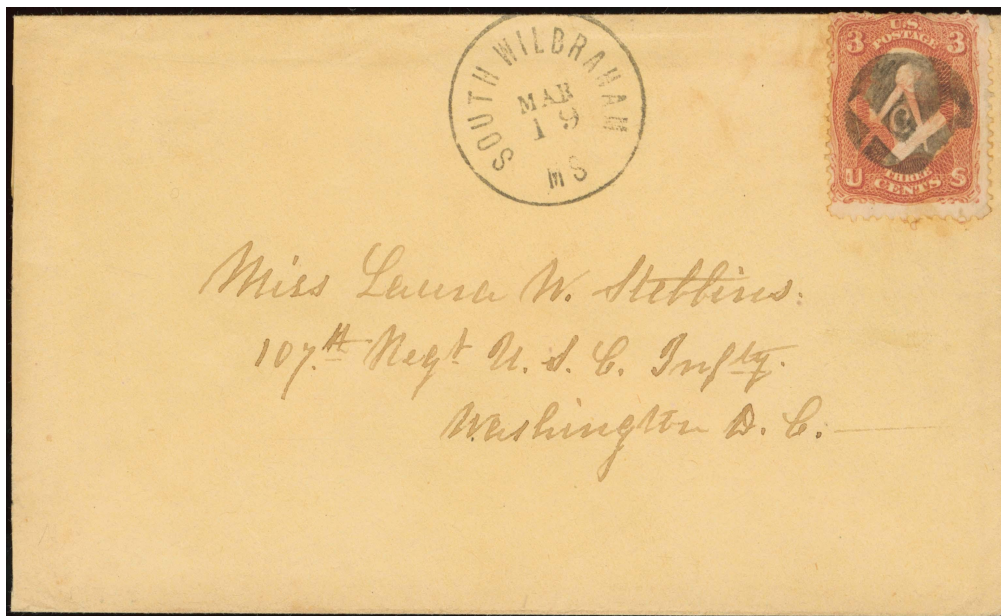 SOUTH WILBRAHAM
MAR
19
MS
U.S.
POSTAGE
3 3
G
THREE
U CENTS S
Miss Laura W. Stebbins.
107th Regt U. S. C. Infty.
Washington D. C.